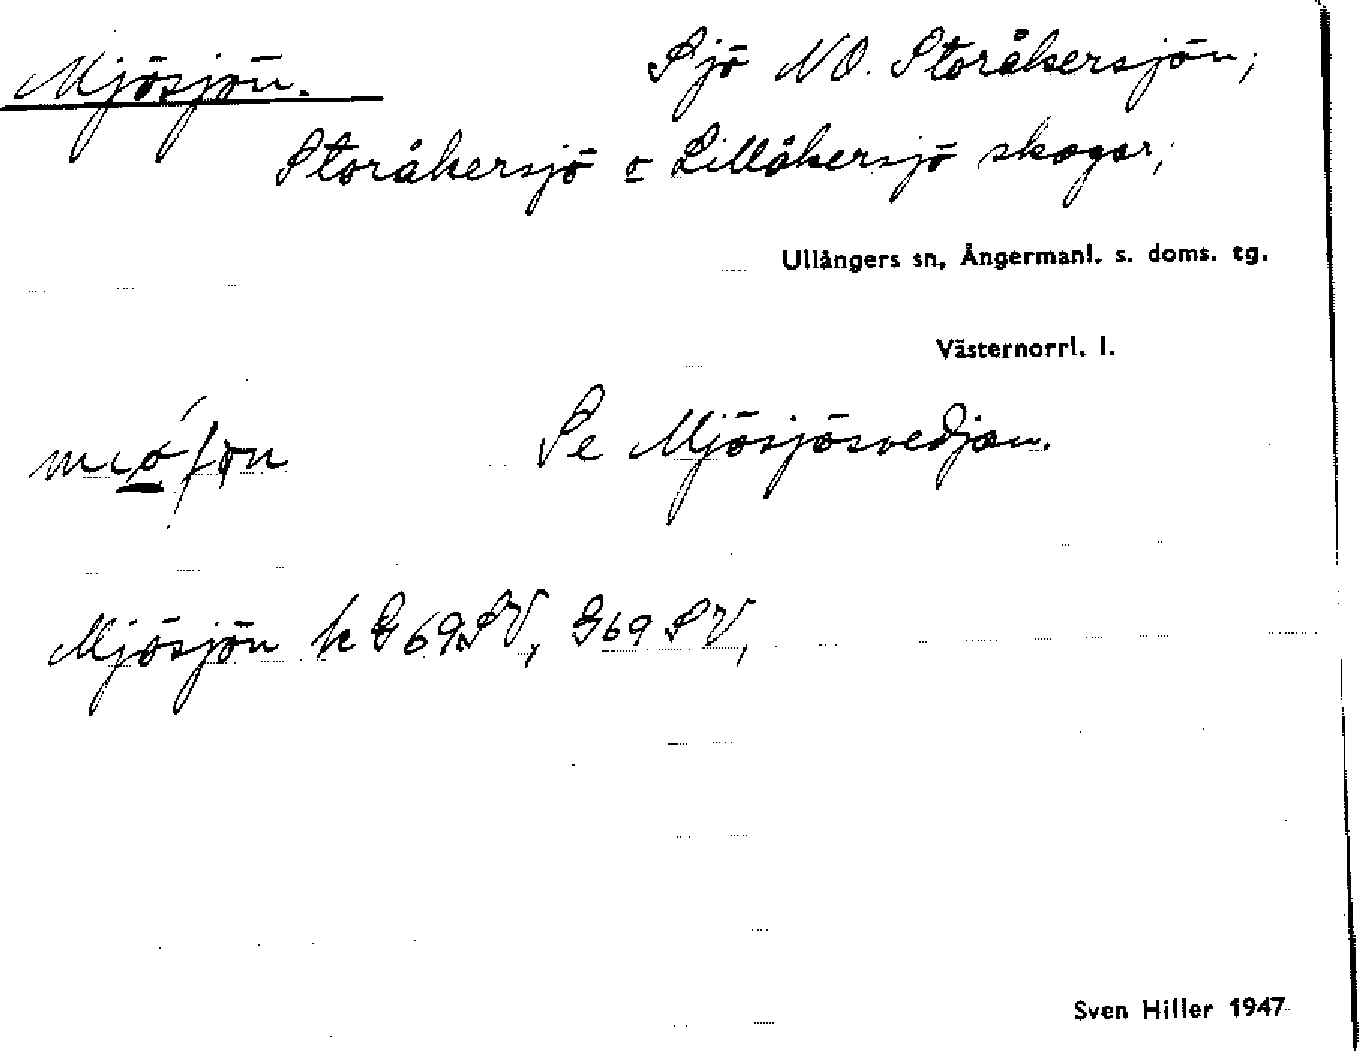 Mjösjön. Sjö NO. Storåkersjön;
Storåkersjö o Lillåkersjö skogar;
Ullångers sn, Ångermanl. s. doms. tg.
Västernorrl. l.
Se Mjösjösvedjan.
Mjösjön k G 69 SV, G 69 SV,
Sven Hiller 1947